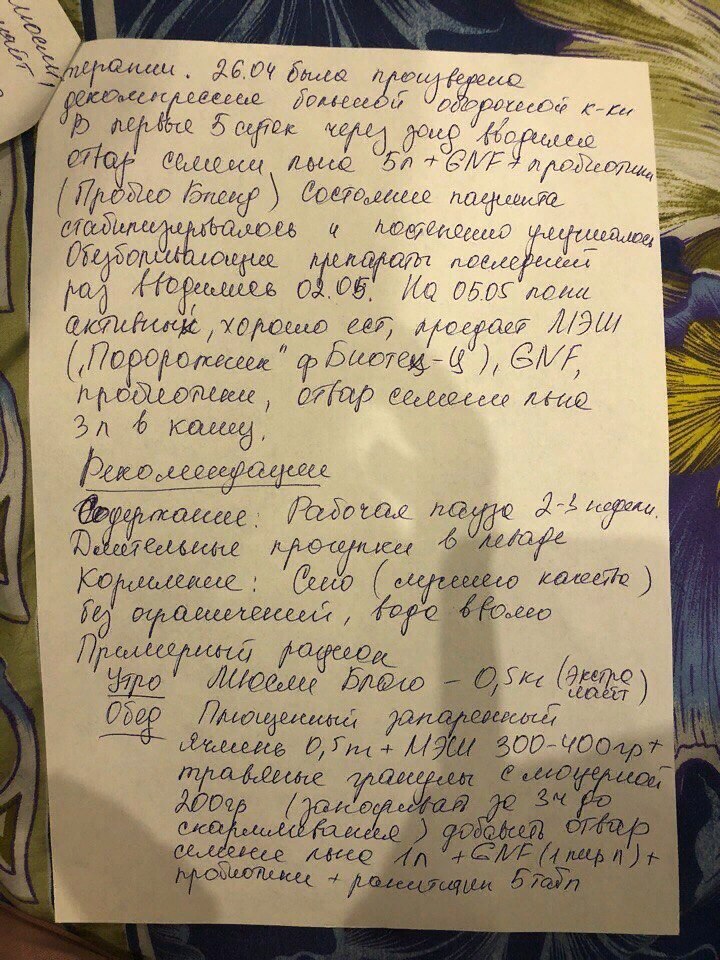 мюсли
лайт
терапии. 26.04 была произведена
декомпрессия большой ободочной к-ки
В первые 5 суток через зонд вводился
отвар семени льна 5л + GNF + пробиотики
(Пробио Бленд) Состояние пациента
стабилизировалось и постепенно улучшалось
Обезболивающие препараты последний
раз вводились 02.05. На 05.05 пони
активный, хорошо ест, проедает МЭШ
("Подорожник" ф Биотец-Ц), GNF,
пробиотики, отвар семени льна
3л в кашу.
Рекомендации
Содержание: Рабочая пауза 2-3 недели.
Длительные прогулки в леваде
Кормление: Сено (лучшего качества)
без ограничений, вода вволю
Примерный рацион
Утро Мюсли Благо – 0,5кг (Экстра
лайт)
Обед Плющенный запаренный
ячмень 0,5 + МЭШ 300-400гр +
травяные гранулы с люцерной
200гр (за 3ч до
скармливания) добавить отвар
семени льна 1л + GNF (1 мер л) +
пробиотики + ранитидин 5 табл